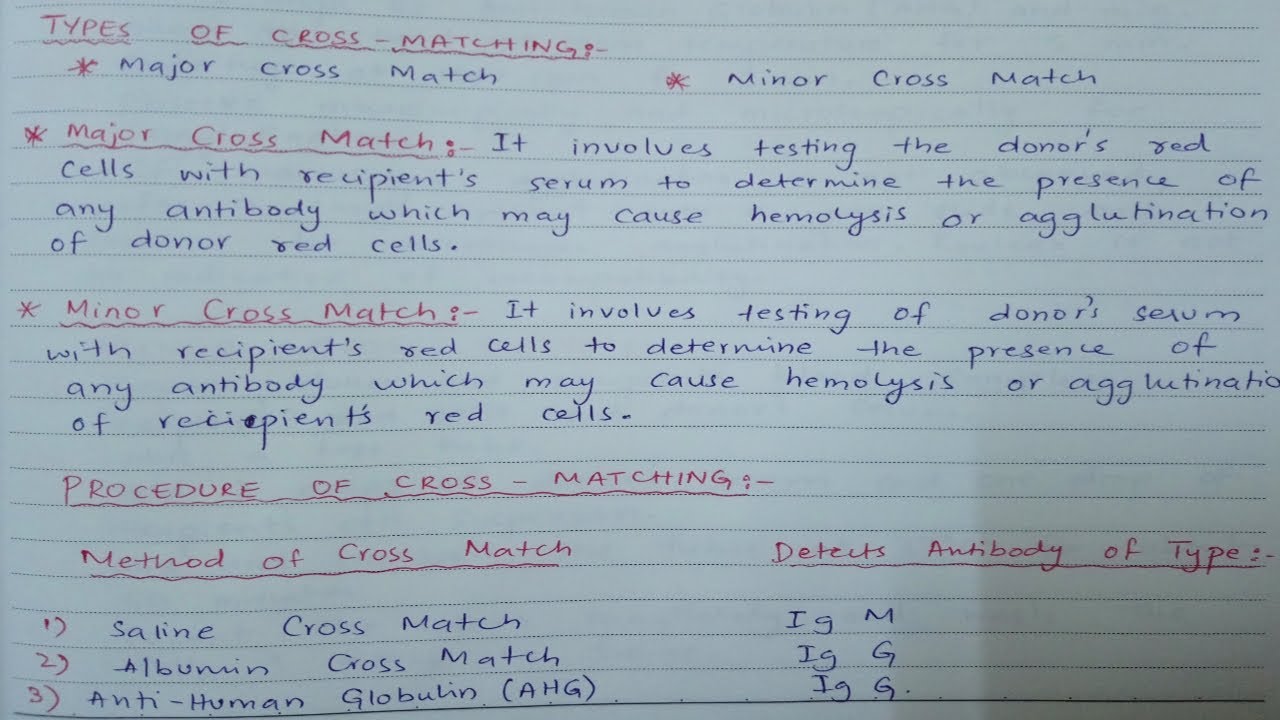 TYPES OF CROSS-MATCHING:-
* Major Cross Match * Minor Cross Match
* Major Cross Match:- It involves testing the donor's red
cells with recipient's serum to determine the presence of
any antibody which may cause hemolysis or agglutination
of donor red cells.
* Minor Cross Match:- It involves testing of donor's serum
with recipient's red cells to determine the presence of
any antibody which may cause hemolysis or agglutinatio
of recicpient's red cells.
PROCEDURE OF CROSS-MATCHING:-
Method of Cross Match Detects Antibody of Type:-
1) Saline Cross Match Ig M
2) Albumin Cross Match Ig G
3) Anti-Human Globulin (AHG) Ig G.